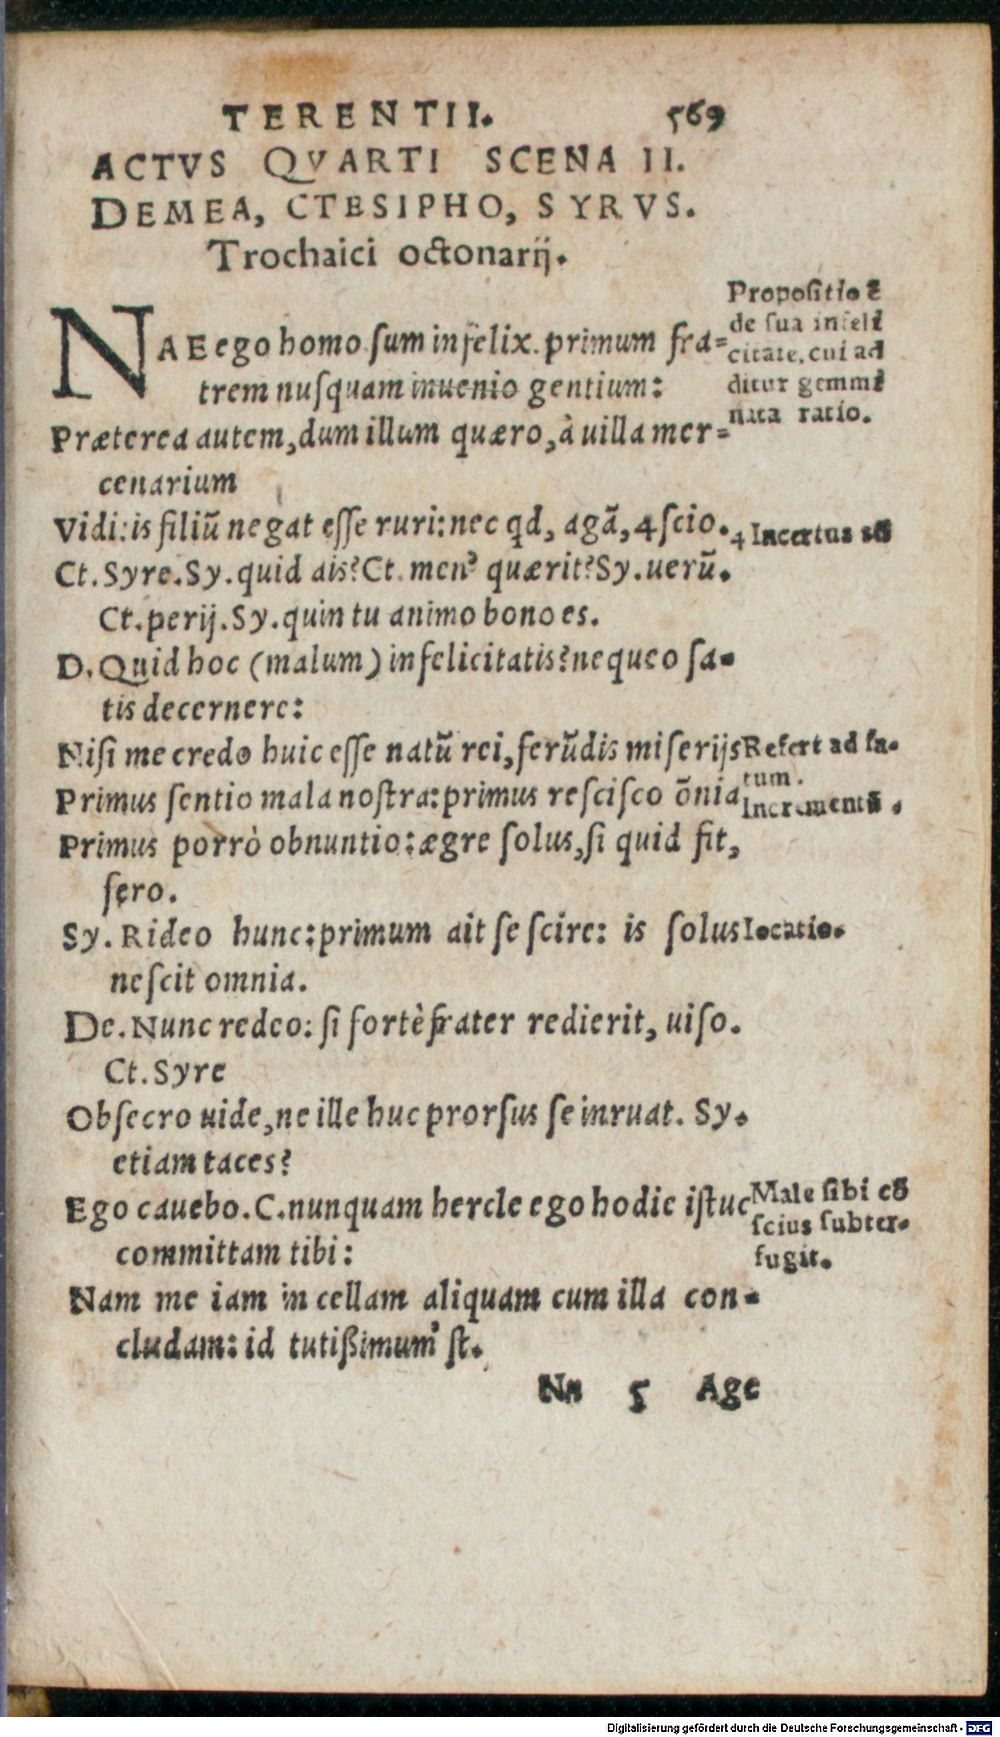 TERENTII. 569
ACTVS QVARTI SCENA II.
DEMEA, CTESIPHO, SYRVS.
Trochaici octonarij.
NAE ego homo sum infelix. primum fra-
trem nusquam inuenio gentium:
Præterea autem, dum illum quæro, à uilla mer-
cenarium
Vidi: is filiũ negat esse ruri: nec qd, agã, 4 scio.
Ct. Syre. Sy. quid ais? Ct. men' quærit? Sy. uerũ.
Ct. perij. Sy. quin tu animo bono es.
D. Quid hoc (malum) infelicitatis? nequeo sa-
tis decernere:
Nisi me credo huic esse natũ rei, ferũdis miserijs
Primus sentio mala nostra: primus rescisco õnia
Primus porrò obnuntio: ægre solus, si quid fit,
fero.
Sy. Rideo hunc: primum ait se scire: is solus
nescit omnia.
De. Nunc redeo: si fortè frater redierit, uiso.
Ct. Syre
Obsecro uide, ne ille huc prorsus se inruat. Sy.
etiam taces?
Ego cauebo. C. nunquam hercle ego hodie istuc
committam tibi:
Nam me iam in cellam aliquam cum illa con-
cludam: id tutißimum' st.
Nn 5 Age
Propositio ẽ
de sua infeli
citate, cui ad
ditur gemmi
nata ratio.
4 Incertus
Refert ad fa-
tum.
Incrementũ.
Iocatio.
Male sibi
scius subter-
fugit.
Digitalisierung gefördert durch die Deutsche Forschungsgemeinschaft - DFG